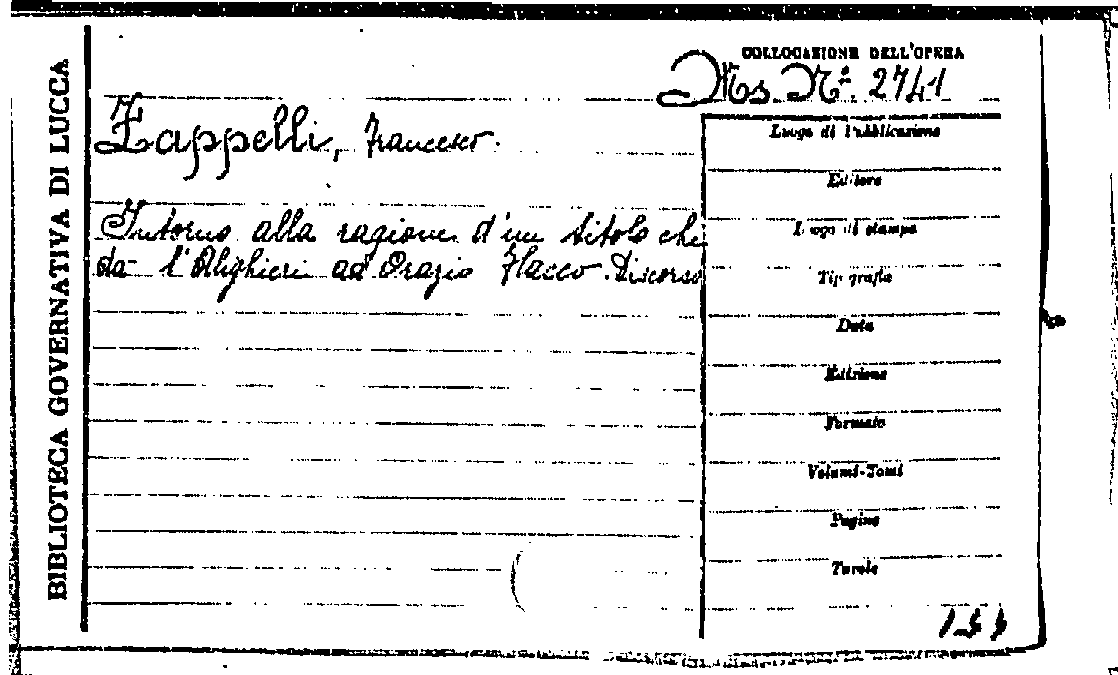 BIBLIOTECA GOVERNATIVA DI LUCCA
COLLOCAZIONE DELL'OPERA
Ms. Nº. 2741
Zappelli, Francesco.
Intorno alla ragione d'un titolo che
dà l'Alighieri ad Orazio Flacco. Discorso
Luogo di Pubblicazione
Editore
Luogo di stampa
Tipografia
Data
Edizione
Formato
Volumi-Tomi
Pagine
Tavole